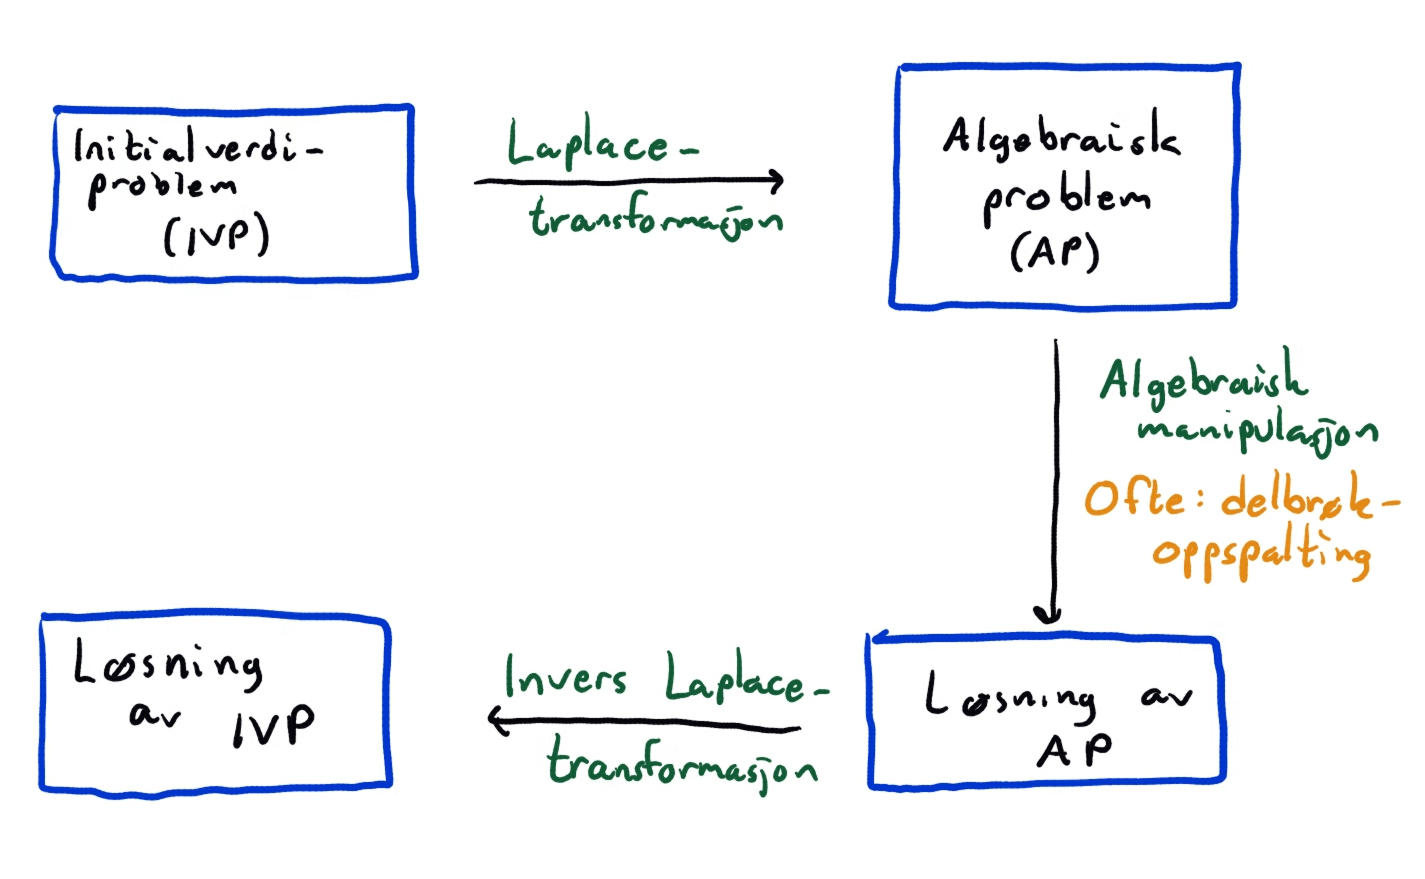 Initialverdi-
problem
(IVP)
Laplace-
transformasjon
Algebraisk
problem
(AP)
Algebraisk
manipulasjon
Ofte: delbrøk-
oppspalting
Løsning av
AP
Invers Laplace-
transformasjon
Løsning
av IVP